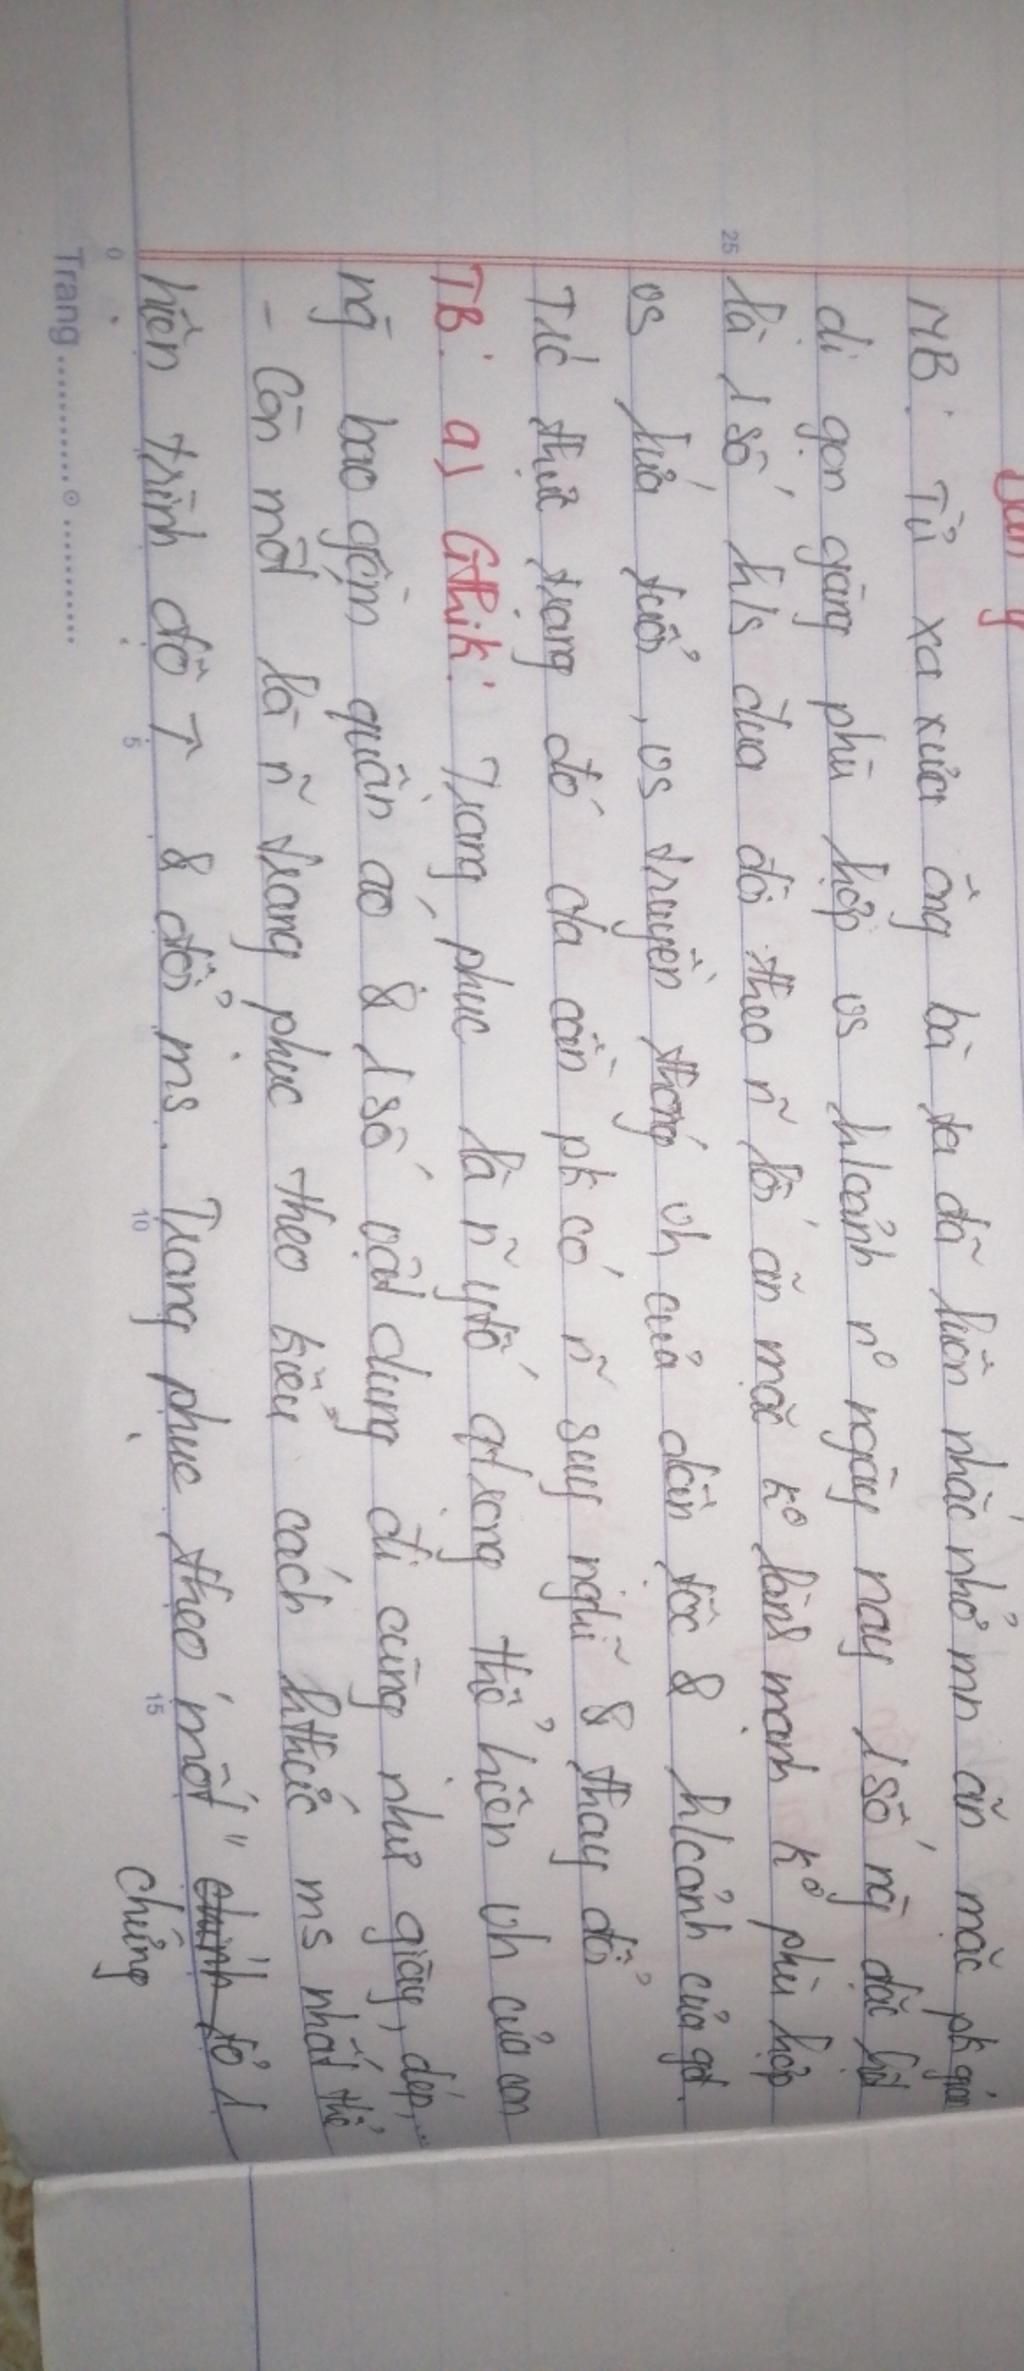 Dàn ý
MB: Từ xa xưa ông bà ta đã luôn nhắc nhở mn ăn mặc pk giản
dị gọn gàng phù hợp vs h/cảnh nº ngày nay 1 số ng đặc biệt
là 1 số h/s đua đòi theo n~ lối ăn mặc kº lành mạnh kº phù hợp
vs lứa tuổi, vs truyền thống vh của dân tộc & h/cảnh của gđ.
Từ thực trạng đó ta cần pk có n~ suy nghĩ & thay đổi
TB: a) Gthik: Trang phục là n~ ytố qtrọng thể hiện vh của con
ng bao gồm quần áo & 1 số vật dụng đi cùng như giày, dép,..
- Còn mốt là n~ trang phục theo kiểu cách hthức ms nhất thể
hiện trình độ ↑ & đổi ms. Trang phục theo "mốt" tỏ 1
chứng
Trang
25
0
5
10
15